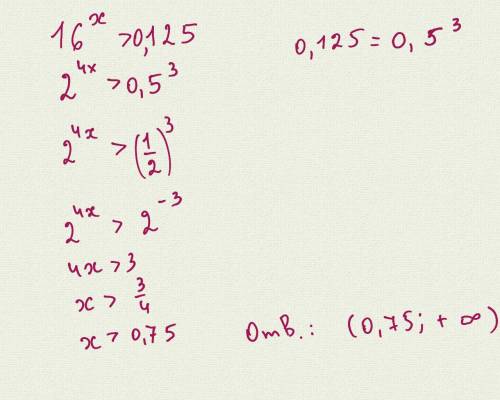 16^x > 0,125
0,125 = 0,5^3
2^{4x} > 0,5^3
2^{4x} > (1/2)^3
2^{4x} > 2^{-3}
4x > 3
x > 3/4
x > 0,75
Отв.: (0,75; +∞)